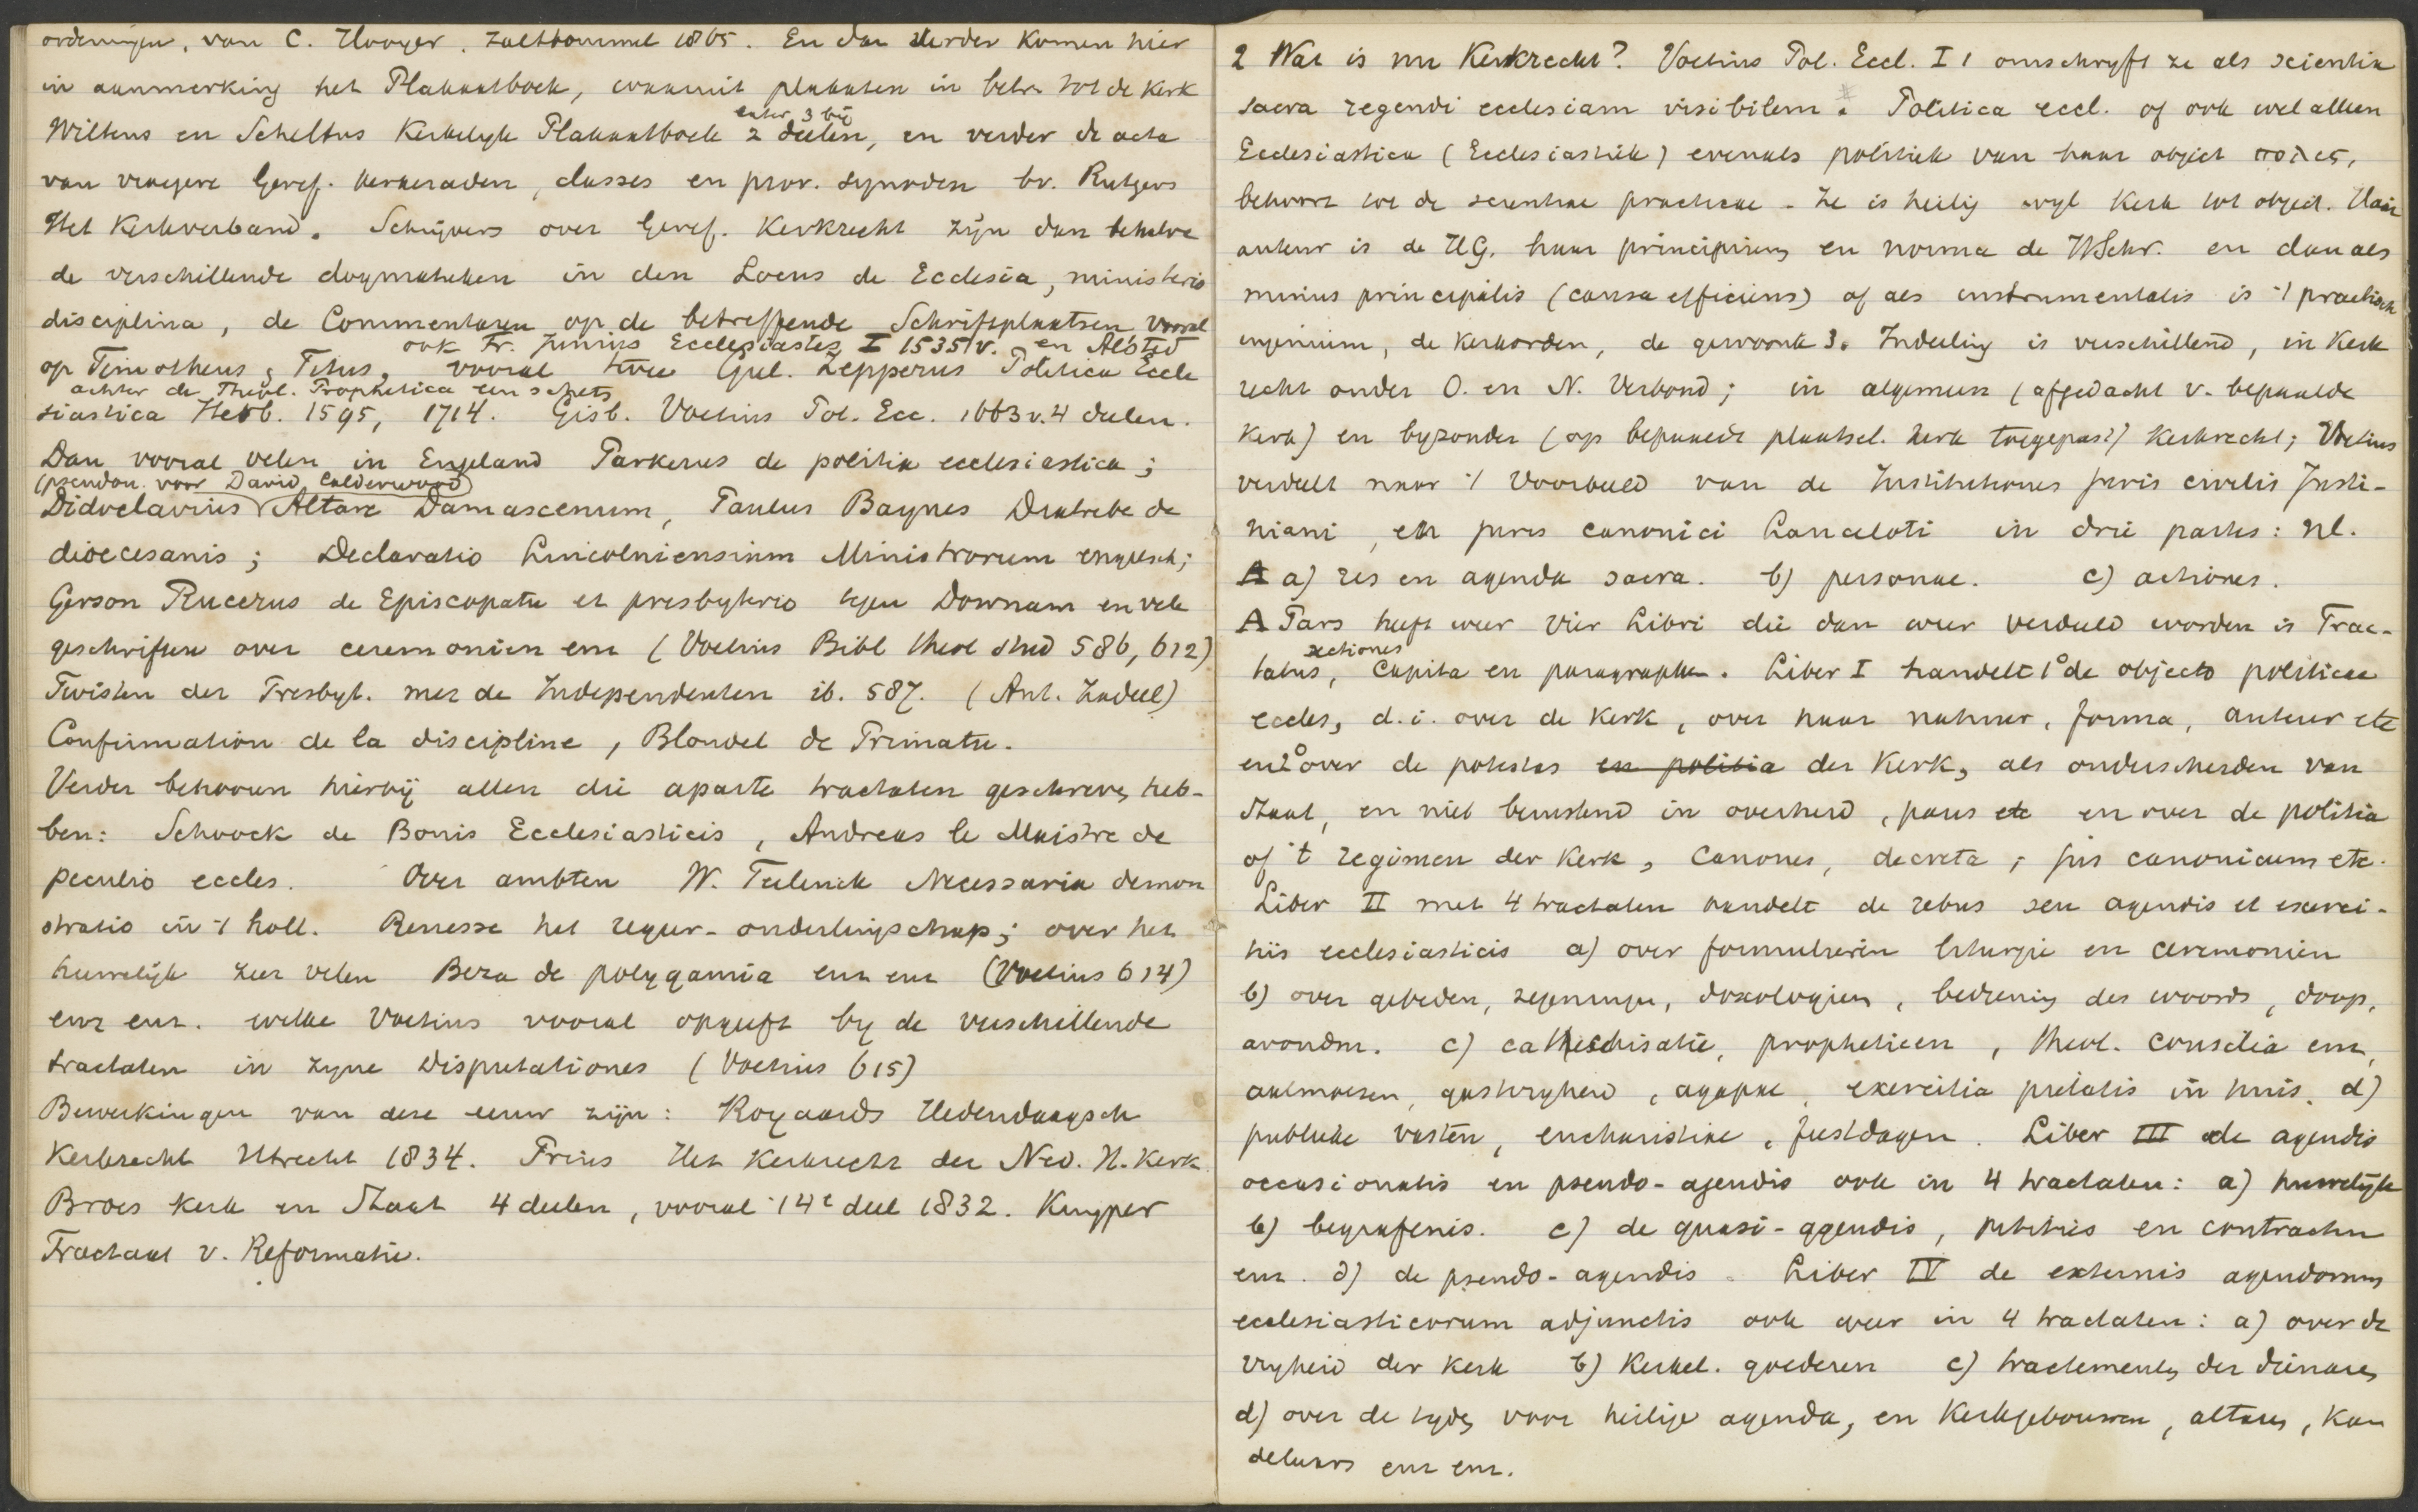 ordeningen, van C. Hooyer. Zaltbommel 1865. En dan verder komen hier
in aanmerking het Plakaatboek, waaruit plakaten in betr. tot de kerk
Wiltens en Scheltus Kerkelyk Plakaatboek 2 deelen, en verder de acta
later 3 bij
van vroegere Geref. kerkeraden, classes en prov. synoden bv. Rutgers
Het Kerkverband. Schrijvers over Geref. Kerkrecht zijn dan behalve
de verschillende dogmatieken in den Locus de Ecclesia, ministerio
disciplina, de Commentaren op de betreffende Schriftplaatsen vooral
ook Fr. Junius Ecclesiastes I 1535 v. en Alsted
op Timotheus, Titus, vooral twee Guil. Zepperus Politica Eccle
achter de Theol. Prophetica een schets
siastica Herb. 1595, 1714. Gisb. Voetius Pol. Ecc. 1663 v. 4 deelen.
Dan vooral velen in Engeland Parkerus de politia ecclesiastica;
(pseudon. voor David Calderwood)
Didoclavius Altare Damascenum, Paulus Baynes Diatribe de
diocesanis; Declaratio Lincolniensium Ministrorum engelsch;
Gerson Bucerus de Episcopatu et presbyterio tegen Downam en vele
geschriften over ceremonien enz (Voetius Bibl theol stud 586, 612)
Twisten der Presbyt. met de Independenten ib. 587. (Ant. Zadeel)
Confirmation de la discipline, Blondel de Primatu.
Verder behooren hierbij allen die aparte tractaten geschreven heb-
ben: Schoock de Bonis Ecclesiasticis, Andreas le Maistre de
peculio eccles. Over ambten W. Teelinck Necessaria demon
stratio in 't holl. Renesse het regeer-ouderlingschap; over het
huwelijk zeer velen Beza de polygamia enz enz (Voetius 614)
enz enz. welke Voetius vooral opgeeft by de verschillende
tractaten in zyne Disputationes (Voetius 615)
Bewerkingen van deze eeuw zijn: Royaards Hedendaagsch
Kerkrecht Utrecht 1834. Prins Het Kerkrecht der Ned. H. Kerk
Broes kerk en Staat 4 deelen, vooral 't 4e deel 1832. Kuyper
Tractaat v. Reformatie.
2 Wat is nu Kerkrecht? Voetius Pol. Eccl. I 1 omschryft ze als scientia
sacra regendi ecclesiam visibilem. Politica eccl. of ook wel alleen
Ecclesiastica (Ecclesiastiek) evenals politiek van haar object πολις,
behoort tot de scientiae practicae - Ze is heilig wyl Kerk tot object. Haar
auteur is de HG. haar principium en norma de HSchr. en dan als
minus principalis (causa efficiens) of als instrumentalis is 't practisch
ingenium, de kerkorden, de gewoonte 3. Indeeling is verschillend, in Kerk
recht onder O. en N. Verbond; in algemeen (afgedacht v. bepaalde
kerk) en byzonder (op bepaalde plaatsel. kerk toegepast) kerkrecht; Voetius
verdeelt naar 't voorbeeld van de Institutiones juris civilis Justi-
niani, en juris canonici Lanceloti in drie partes: nl.
A a) res en agenda sacra. b) personae. c) actiones.
A Pars heeft weer vier Libri die dan weer verdeeld worden is Trac-
sectiones
tatus, Capita en paragraphen. Liber I handelt 1° de objecto politicae
eccles, d.i. over de kerk, over haar natuur, forma, auteur etc
en 2° over de potestas en politia der Kerk, als onderscheiden van
staat, en niet berustend in overheid, paus etc en over de politia
of 't regimen der kerk, Canones, decreta, jus canonicum etc.
Liber II met 4 tractaten handelt de rebus seu agendis et exerci-
tiis ecclesiasticis a) over formulieren liturgie en ceremonien
b) over gebeden, zegeningen, doxologien, bediening des woords, doop,
avondm. c) cathechisatie, prophetieen, theol. consilia enz,
aalmoesen, gastvryheid, agapae, exercitia pietatis in huis. d)
publieke vasten, eucharistiae, feestdagen. Liber III de agendis
occasionatis en pseudo-agendis ook in 4 tractaten: a) huwelijk
b) begrafenis. c) de quasi-agendis, petities en contracten
enz. d) de pseudo-agendis. Liber IV de externis agendorum
ecclesiasticorum adjunctis ook weer in 4 tractaten: a) over de
vryheid der kerk b) Kerkel. goederen c) tractementen der dienaren
d) over de tyden voor heilige agenda, en Kerkgebouwen, altaren, kan
delaars enz enz.